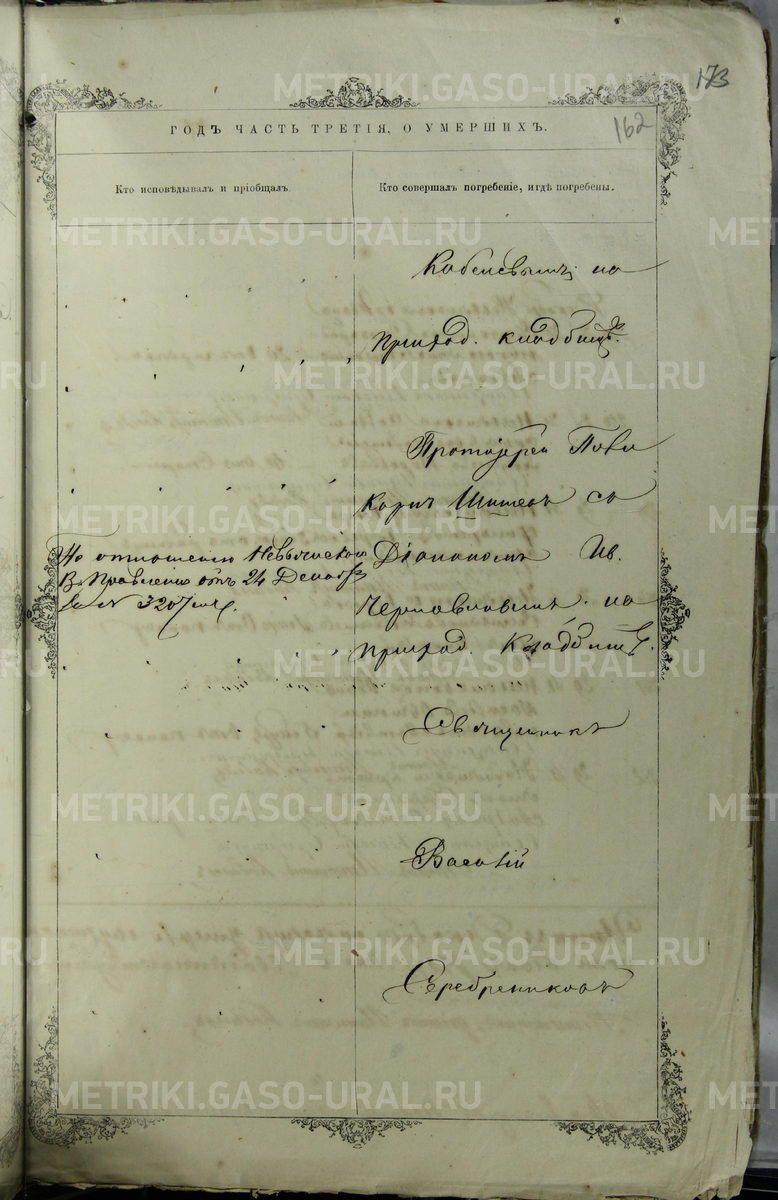 173
162
ГОДЪ ЧАСТЬ ТРЕТІЯ, О УМЕРШИХЪ.
Кто исповѣдывалъ и пріобщалъ.
Кто совершалъ погребеніе, и гдѣ погребены.
на
приход. кладбищѣ.
Протоіерей
съ
По отношенію Невьянскаго
В. Правленія отъ 24 Декабря
за № 3207
Діакономъ Ив.
на
приход. Кладбищѣ.
Священникъ
Василій
Серебренниковъ
METRIKI.GASO-URAL.RU